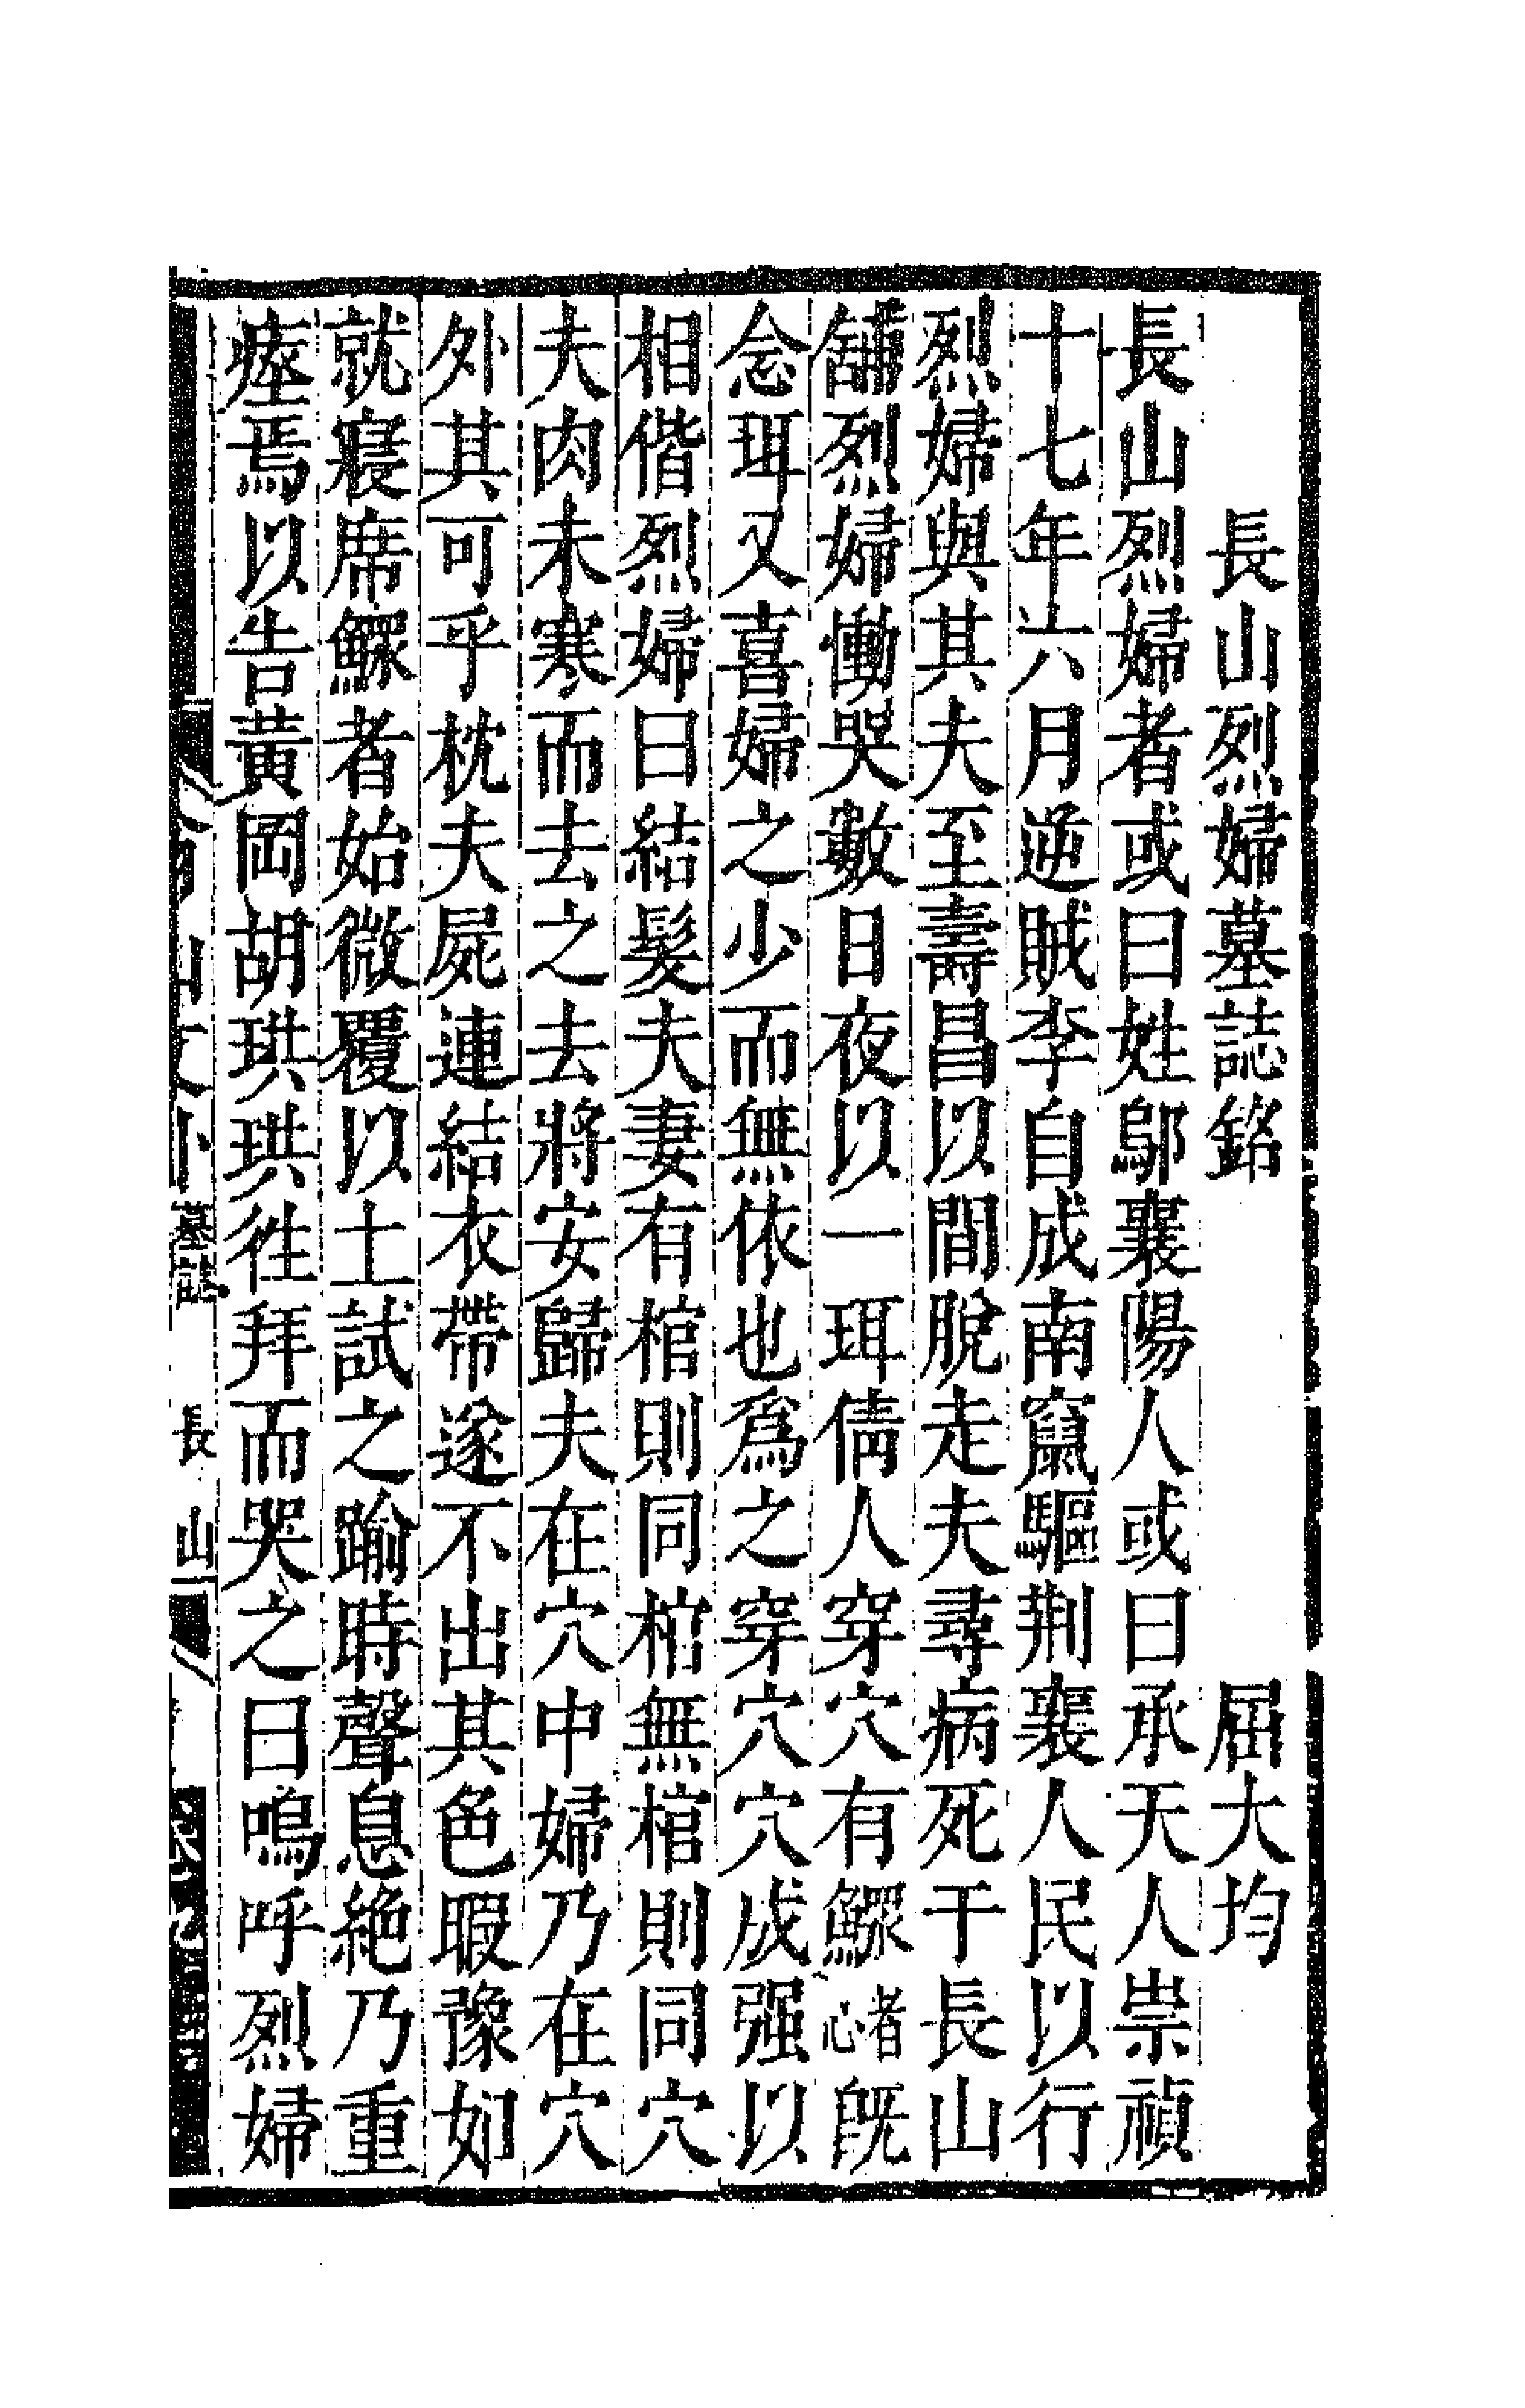 長山烈婦墓誌銘　屈大均
長山烈婦者或曰姓鄔襄陽人或曰承天人崇禎
十七年六月逆賊李自成南竄驅荆襄人民以行
烈婦與其夫至壽昌以間脫走夫尋病死于長山
舖烈婦慟哭數日夜以一珥倩人穿穴有鰥者心旣
念珥又喜婦之少而無依也爲之穿穴穴成强以
相偕烈婦曰結髮夫妻有棺則同棺無棺則同穴
夫肉未寒而去之去將安歸夫在穴中婦乃在穴
外其可乎枕夫屍連結衣帶遂不出其色暇豫如
就寢席鰥者始微覆以土試之踰時聲息絶乃重
瘞焉以告黃岡胡珙珙徃拜而哭之曰嗚呼烈婦
墓誌　長山